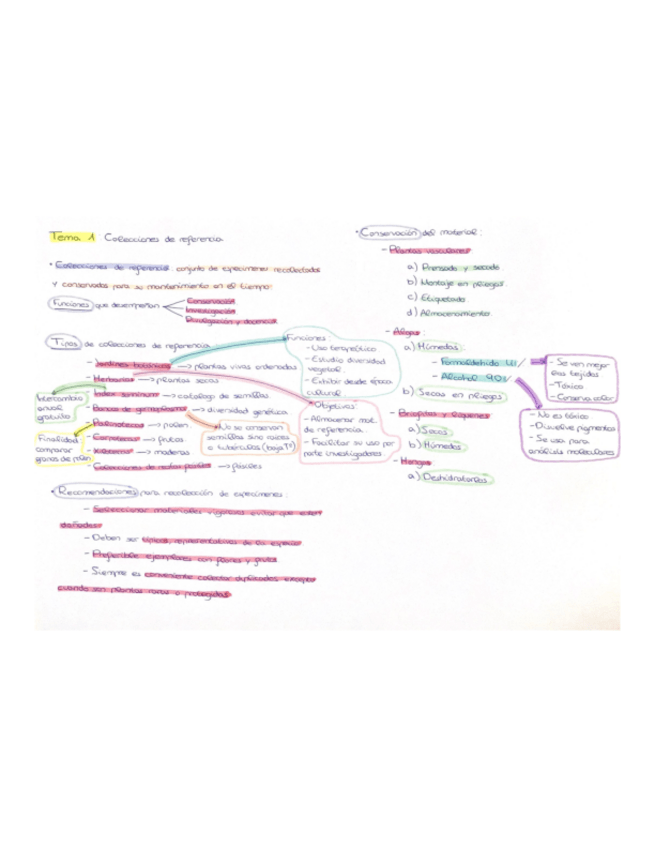 Tema 1 Colecciones de referencia
• Colecciones de referencia: conjunto de especímenes recolectados
y conservados para su mantenimiento en el tiempo.
Funciones que desempeñan
Conservación
Investigación
Divulgación y docencia
Tipos de colecciones de referencia:
- Jardines botánicos → plantas vivas ordenadas
- Herbarios → plantas secas
- Index seminum → catálogo de semillas
- Banco de germoplasma → diversidad genética
- Palinotecas → polen
- Carpotecas → frutos
- Xilotecas → maderas
- Colecciones de restos fósiles → fósiles
Intercambio
anual
gratuito
Finalidad
comparar
granos de polen
No se conservan
semillas sino raíces
o tubérculos (baja Tª)
Funciones:
- Uso terapéutico
- Estudio diversidad
vegetal
- Exhibir desde época
cultural
Objetivos:
- Almacenar mat.
de referencia.
- Facilitar su uso por
parte investigadores.
• Recomendaciones para recolección de especímenes:
- Seleccionar materiales vigorosos evitar que estén
dañados
- Deben ser típicos, representativos de la especie
- Preferible ejemplares con flores y frutos
- Siempre es conveniente colectar duplicados, excepto
cuando son plantas raras o protegidas.
• Conservación del material:
- Plantas vasculares
a) Prensado y secado
b) Montaje en pliegos.
c) Etiquetado
d) Almacenamiento.
- Algas:
a) Húmedas:
- Formaldehído 4%
- Alcohol 90%
b) Secas en pliegos
- Briófitos y líquenes
a) Secas.
b) Húmedas
- Hongos
a) Deshidratarlos.
- Se ven mejor
los tejidos
- Tóxico
- Conserva color
- No es tóxico
- Disuelve pigmentos
- Se usa para
análisis moleculares